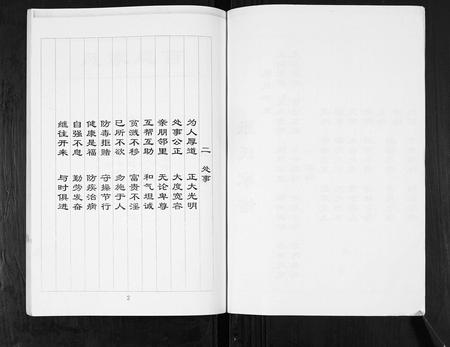 二 处事
为人厚道 正大光明
处事公正 大度宽容
亲朋邻里 无论卑尊
互帮互助 和气坦诚
贫溅不移 富贵不淫
已所不欲 勿施于人
防毒拒赌 守操节行
健康是福 防疾治病
自强不息 勤劳发奋
继往开来 与时俱进
2